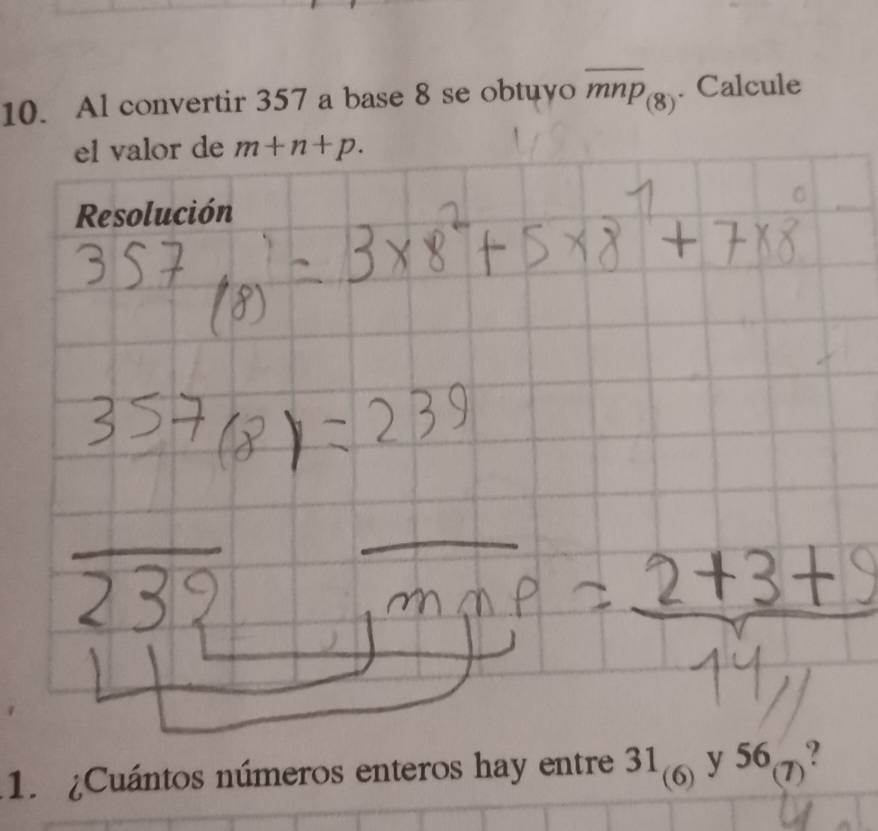 10. Al convertir 357 a base 8 se obtuvo mnp(8). Calcule
el valor de m+n+p.
Resolución
357(8) = 3×8² + 5×8¹ + 7×8⁰
357(8) = 239
239 mnp = 2+3+9
14//
1. ¿Cuántos números enteros hay entre 31(6) y 56(7)?